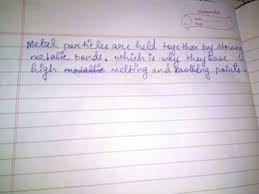 Metal particles are held together by strong
metalic bonds, which is why they have
high metallic melting and boiling points.